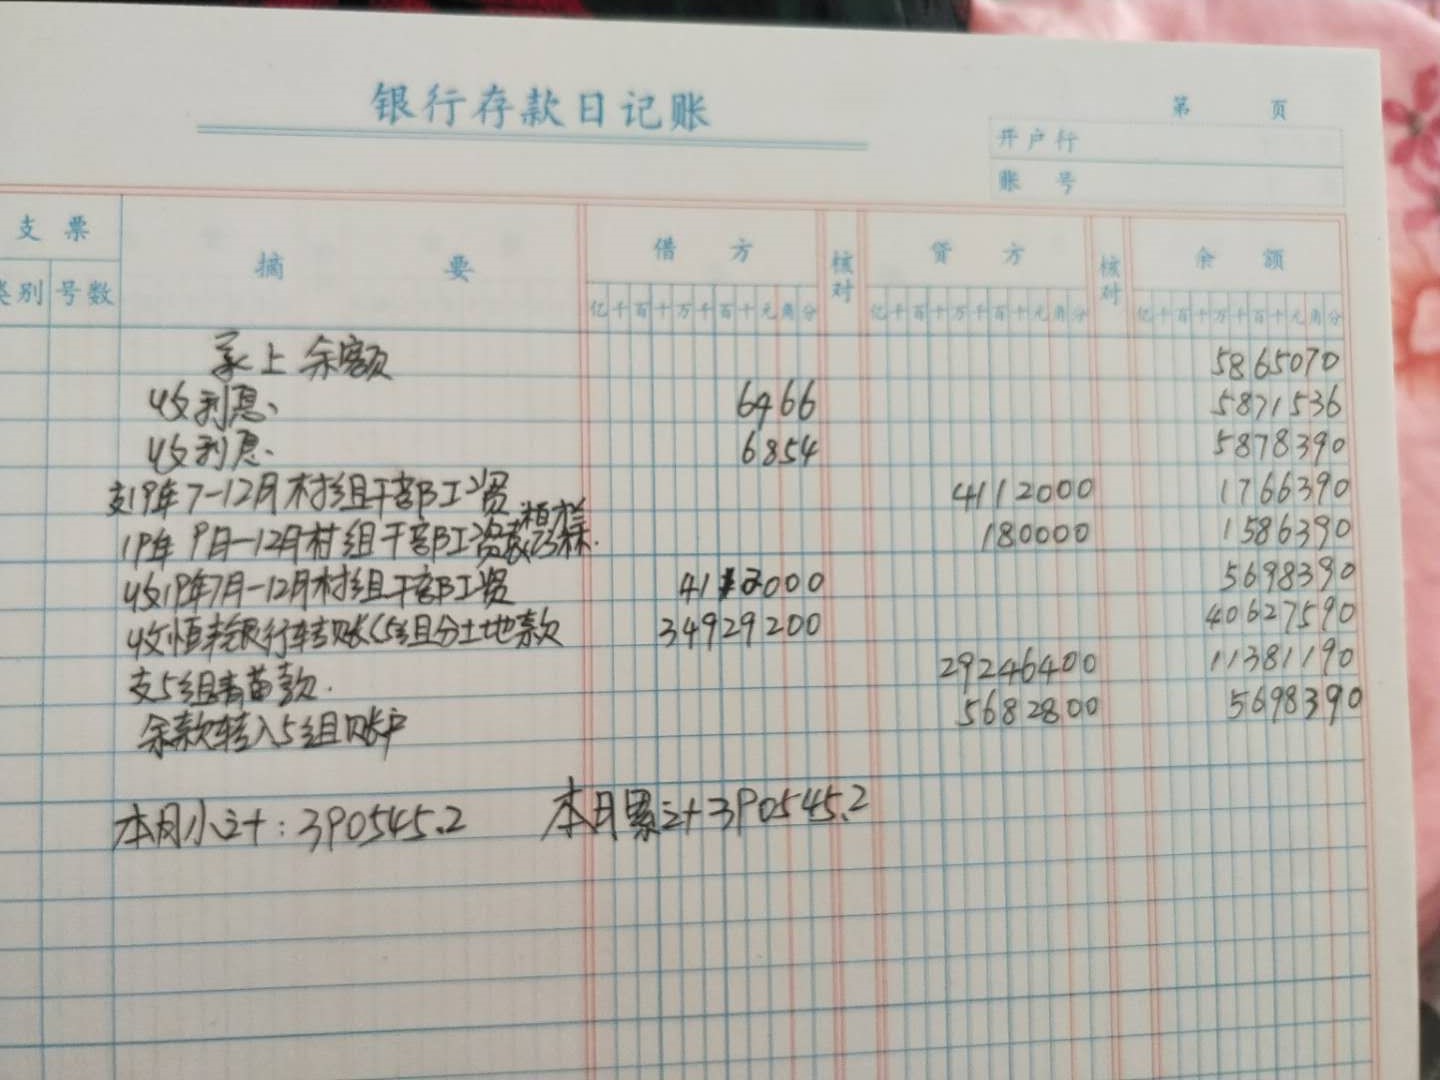 银行存款日记账
第 页
开户行
账号
支票 摘要 借方 核对 贷方 核对 余额
类别 号数 亿千百十万千百十元角分 亿千百十万千百十元角分 亿千百十万千百十元角分
承上余额 5865070
收利息、 6466 5871536
收利息. 6854 5878390
支19年7-12月村组干部工资 4112000 1766390
19年9月-12月村组干部工资 180000 1586390
收19年7月-12月村组干部工资 4112000 5698390
收恒丰银行转账(5组分土地款 34929200 40627590
支5组青苗款. 29246400 11381190
余款转入5组账户 5682800 5698390
本月小计:390545.2 本月累计390545.2